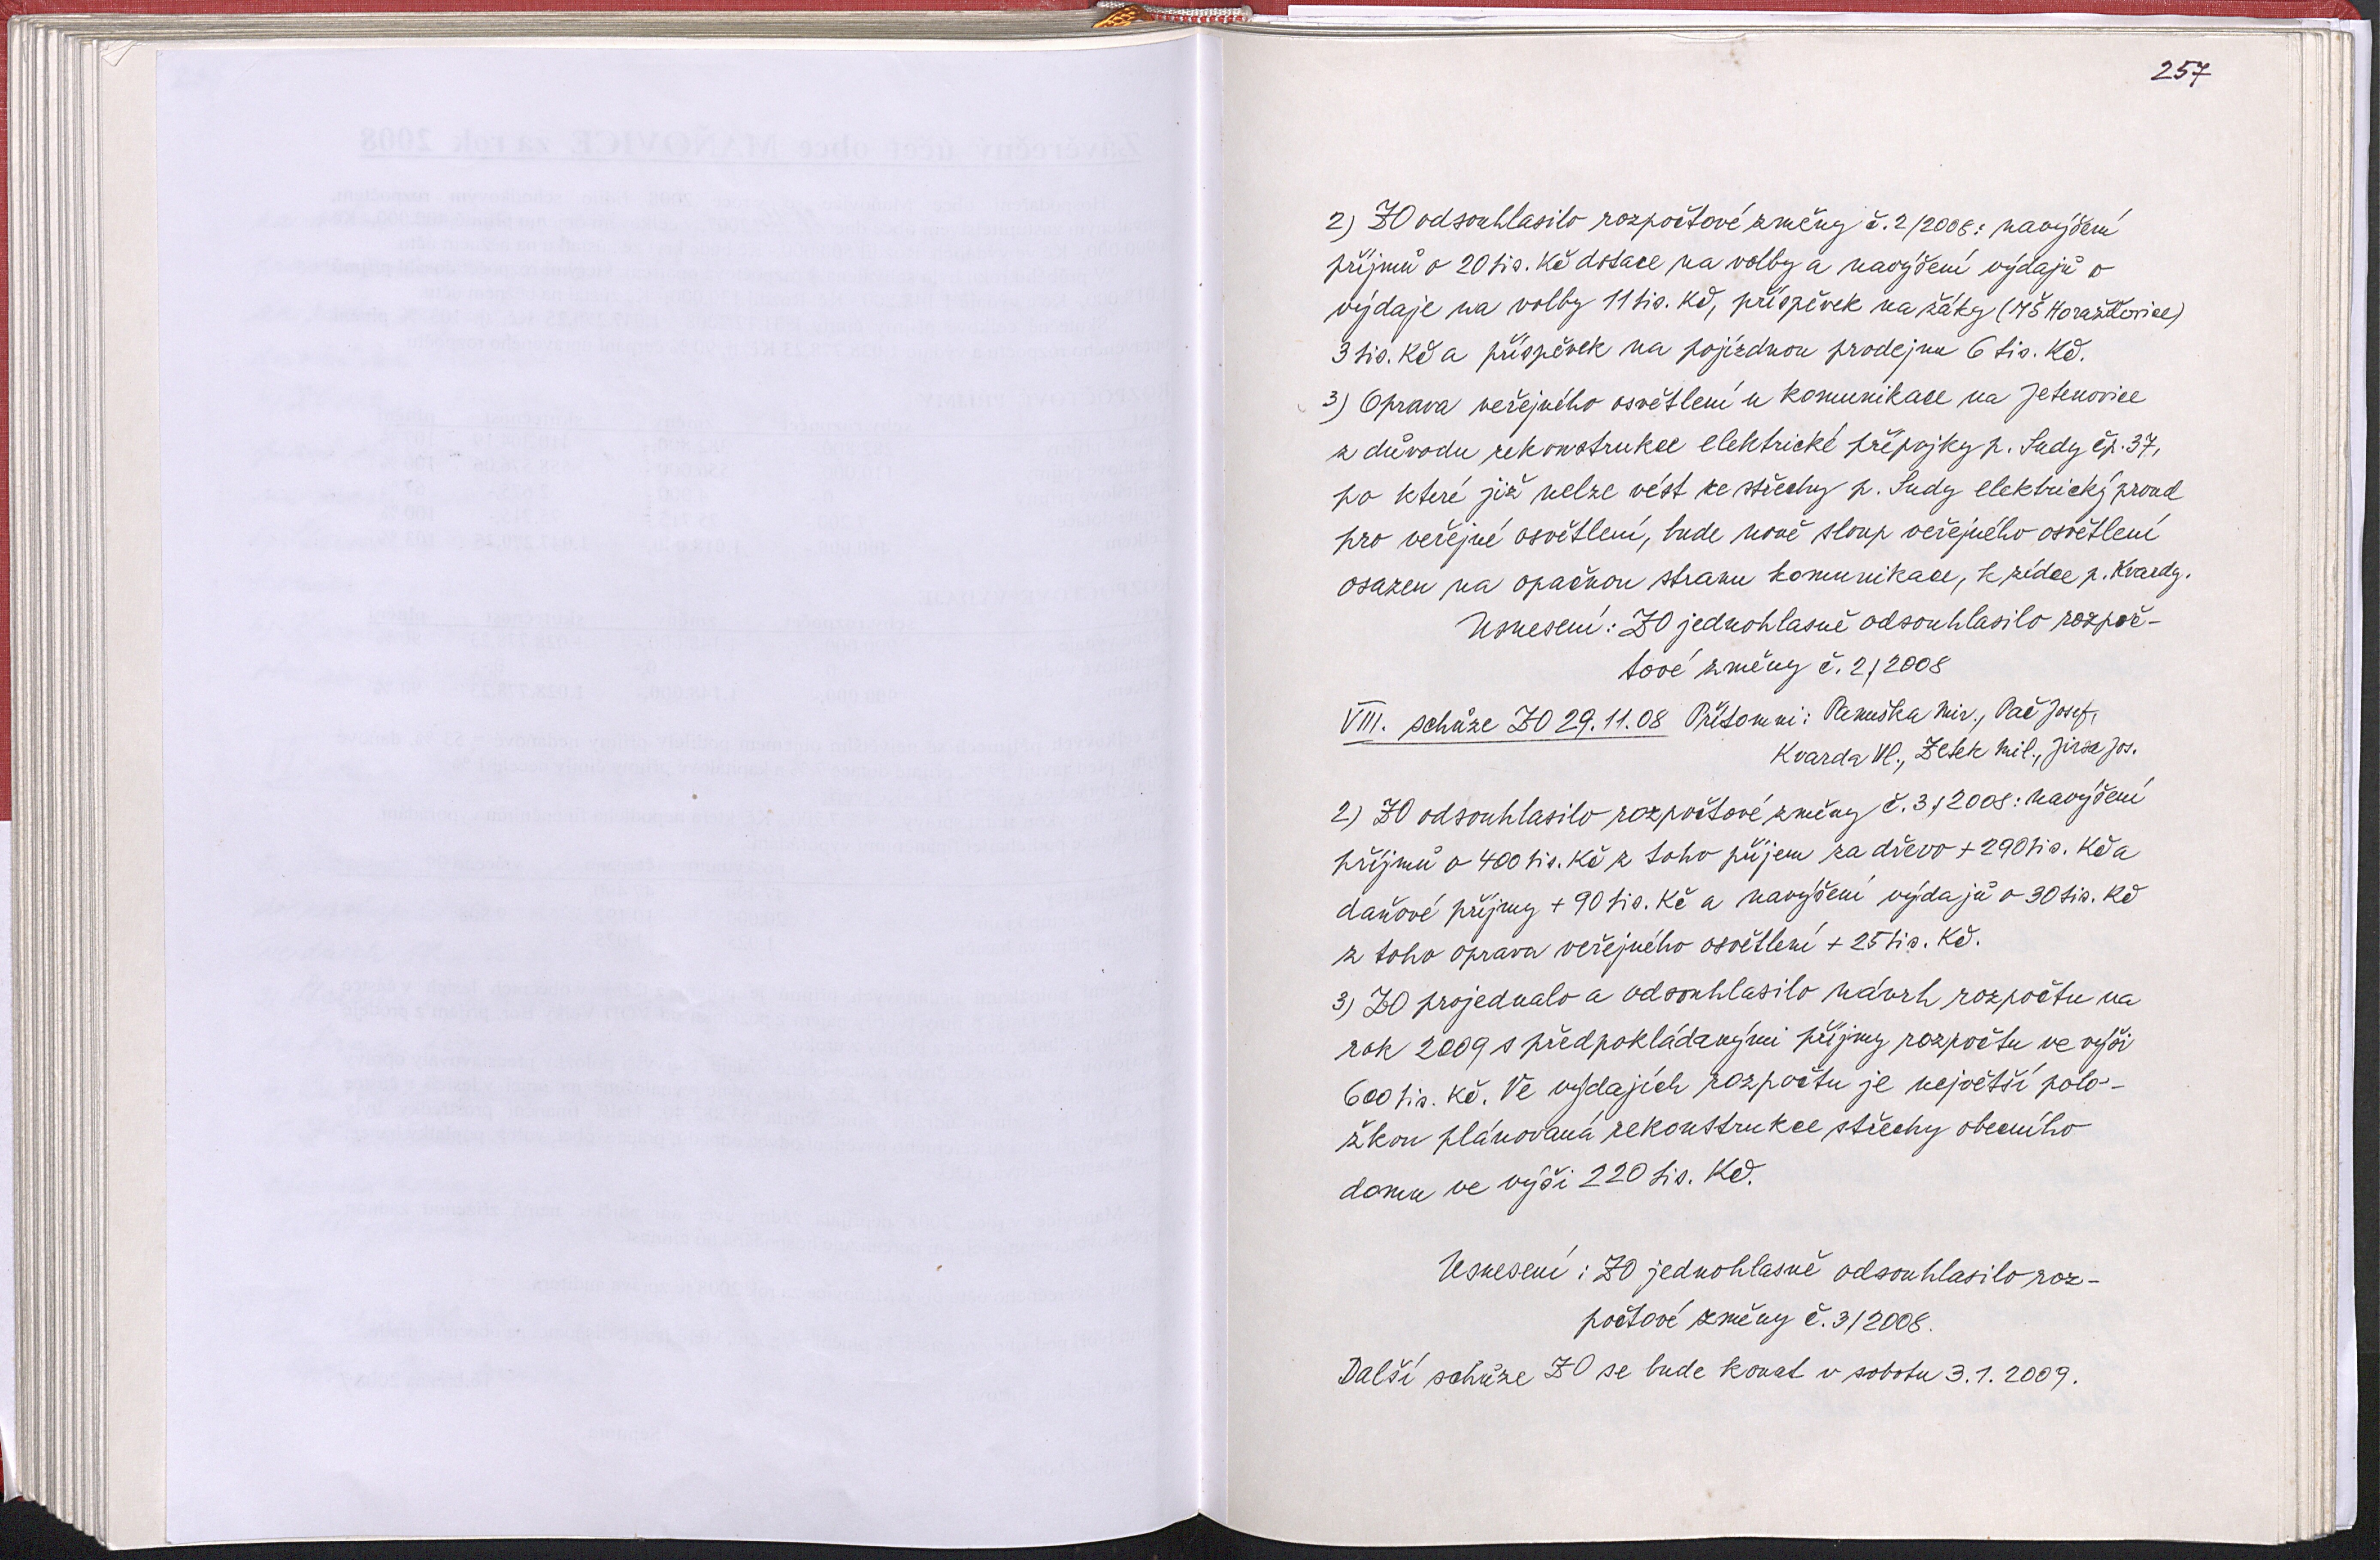 257
2) ZO odsouhlasilo rozpočtové změny č. 2/2008: navýšení
příjmů o 20 tis. Kč dotace na volby a navýšení výdajů o
výdaje na volby 11 tis. Kč, příspěvek na žáky (MŠ Horažďovice)
3 tis. Kč a příspěvek na pojízdnou prodejnu 6 tis. Kč.
3) Oprava veřejného osvětlení u komunikace na Jetenovice
z důvodu rekonstrukce elektrické přípojky p. Sudy čp. 37,
po které již nelze vést ze střechy p. Sudy elektrický proud
pro veřejné osvětlení, bude nově sloup veřejného osvětlení
osazen na opačnou stranu komunikace, k zídce p. Kvardy.
Usnesení: ZO jednohlasně odsouhlasilo rozpoč-
tové změny č. 2/2008
VIII. schůze ZO 29.11.08 Přítomni: Panuška Mir., Pač Josef,
Kvarda Vl., Zetek Mil., Jirsa Jos.
2) ZO odsouhlasilo rozpočtové změny č. 3/2008: navýšení
příjmů o 400 tis. Kč z toho příjem za dřevo + 290 tis. Kč a
daňové příjmy + 90 tis. Kč a navýšení výdajů o 30 tis. Kč
z toho oprava veřejného osvětlení + 25 tis. Kč.
3) ZO projednalo a odsouhlasilo návrh rozpočtu na
rok 2009 s předpokládanými příjmy rozpočtu ve výši
600 tis. Kč. Ve výdajích rozpočtu je největší polo-
žkou plánovaná rekonstrukce střechy obecního
domu ve výši 220 tis. Kč.
Usnesení: ZO jednohlasně odsouhlasilo roz-
počtové změny č. 3/2008.
Další schůze ZO se bude konat v sobotu 3.1.2009.